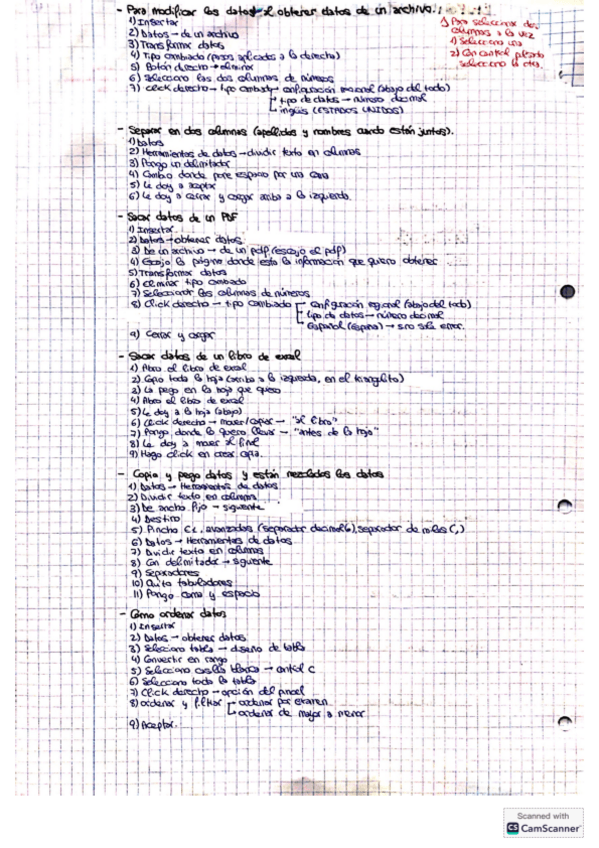 - Para modificar los datos al obtener datos de un archivo:
1) Insertar
2) Datos → de un archivo
3) Transformar datos
4) Tipo cambiado (pasos aplicados a la derecha)
5) Botón derecho → eliminar
6) Selecciono las dos columnas de números
7) click derecho → tipo cambiado → configuración regional (abajo del todo)
→ tipo de datos → número decimal
→ inglés (ESTADOS UNIDOS)
1) Para seleccionar dos
columnas a la vez
1) Selecciono una
2) Con control pulsado
selecciono la otra.
- Separar en dos columnas (apellidos y nombres cuando están juntos).
1) Datos
2) Herramientas de datos → dividir texto en columnas
3) Pongo un delimitador
4) Cambio donde pone espacio por una coma
5) Le doy a aceptar
6) Le doy a cerrar y cargar arriba a la izquierda.
- Sacar datos de un PDF
1) Insertar
2) Datos → obtener datos
3) De un archivo → de un pdf (escojo el pdf)
4) Escojo la página donde esta la información que quiero obtener
5) Transformar datos
6) Eliminar tipo cambiado
7) Seleccionar las columnas de números
8) Click derecho → tipo cambiado → configuración regional (abajo del todo)
tipo de datos → número decimal
Español (España) → sino sale error.
9) Cerrar y cargar
- Sacar datos de un libro de excel
1) Abro el libro de excel
2) Copio toda la hoja (arriba a la izquierda, en el triangulito)
3) La pego en la hoja que quiero
4) Abro el libro de excel
5) Le doy a la hoja (abajo)
6) Click derecho → mover/copiar → "al libro"
7) Pongo donde lo quiero llevar → "antes de la hoja"
8) Le doy a mover al final
9) Hago click en crear copia.
- Copio y pego datos y están mezclados los datos
1) Datos → Herramientas de datos
2) Dividir texto en columnas
3) De ancho fijo → siguiente
4) Destino
5) Pincho C2, avanzadas (separador decimal (.), separador de miles (,)
6) Datos → Herramientas de datos
7) Dividir texto en columnas
8) Con delimitador → siguiente
9) Separadores
10) Quito tabuladores
11) Pongo coma y espacio
- Cómo ordenar datos
1) Insertar
2) Datos → obtener datos
3) Selecciono tabla → diseño de tabla
4) Convertir en rango
5) Selecciono casilla blanca → control C
6) Selecciono toda la tabla
7) Click derecho → opción del pincel
8) ordenar y filtrar → ordenar por examen
ordenar de mayor a menor
9) Aceptar.
Scanned with
CS CamScanner